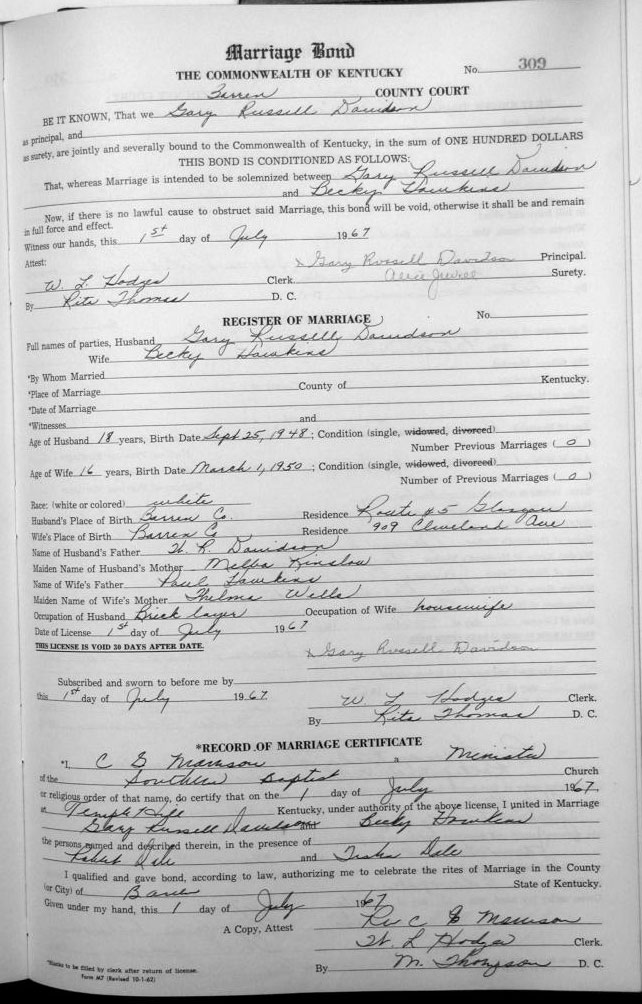 Marriage Bond
THE COMMONWEALTH OF KENTUCKY No. 309
Barren COUNTY COURT
BE IT KNOWN, That we Gary Russell Davidson
as principal, and
as surety, are jointly and severally bound to the Commonwealth of Kentucky, in the sum of ONE HUNDRED DOLLARS
THIS BOND IS CONDITIONED AS FOLLOWS:
That, whereas Marriage is intended to be solemnized between Gary Russell Davidson
and Becky Hawkins
Now, if there is no lawful cause to obstruct said Marriage, this bond will be void, otherwise it shall be and remain
in full force and effect.
Witness our hands, this 1st day of July 1967
Attest: x Gary Russell Davidson Principal.
W. L Hodges Clerk. Alice Jewell Surety.
By Rita Thomas D. C.
REGISTER OF MARRIAGE No.
Full names of parties, Husband Gary Russell Davidson
Wife Becky Hawkins
*By Whom Married
*Place of Marriage County of Kentucky.
*Date of Marriage
*Witnesses and
Age of Husband 18 years, Birth Date Sept 25, 1948; Condition (single, widowed, divorced)
Number Previous Marriages ( 0 )
Age of Wife 16 years, Birth Date March 1, 1950; Condition (single, widowed, divorced)
Number of Previous Marriages ( 0 )
Race: (white or colored) white
Husband's Place of Birth Barren Co. Residence Route #5 Glasgow
Wife's Place of Birth Barren Co Residence 909 Cleveland Ave
Name of Husband's Father H. R. Davidson
Maiden Name of Husband's Mother Melba Kinslow
Name of Wife's Father Paul Hawkins
Maiden Name of Wife's Mother Thelma Wells
Occupation of Husband Brick layer Occupation of Wife housewife
Date of License 1st day of July 1967
THIS LICENSE IS VOID 30 DAYS AFTER DATE.
x Gary Russell Davidson
Subscribed and sworn to before me by
this 1st day of July 1967. W L Hodges Clerk.
By Rita Thomas D. C.
*RECORD OF MARRIAGE CERTIFICATE
*I, C G a Minister
of the Southern Baptist Church
or religious order of that name, do certify that on the 1 day of July 1967.
at Temple Hill Kentucky, under authority of the above license, I united in Marriage
Gary Russell Davidson and Becky Hawkins
the persons named and described therein, in the presence of
Robert Dale and Dale
I qualified and gave bond, according to law, authorizing me to celebrate the rites of Marriage in the County
(or City) of State of Kentucky.
Given under my hand, this 1 day of July 1967
Rev C G
A Copy, Attest W. L Hodges Clerk.
By M. Thompson D. C.
*Blanks to be filled by clerk after return of license.
Form M7 (Revised 10-1-62)